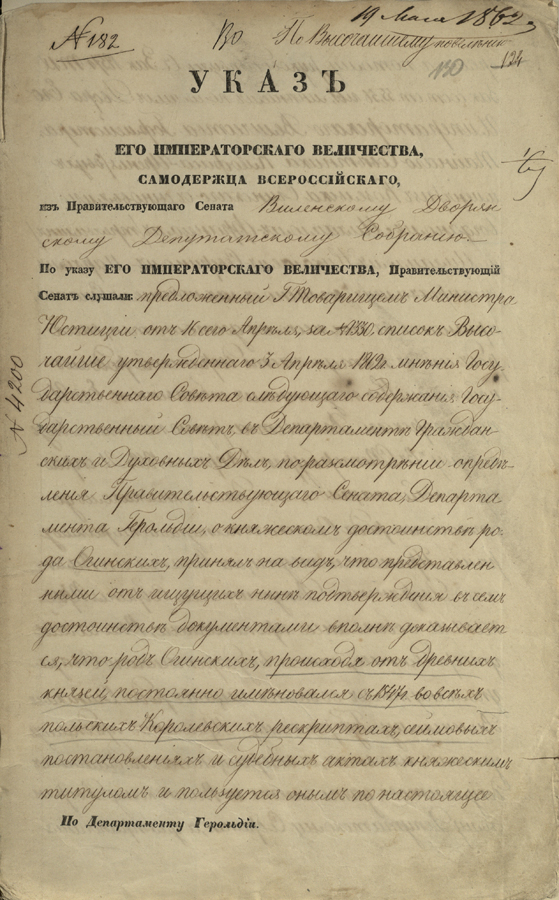 19 Мая 1862
№ 182
Во
По Высочайшему повелѣнію
130
124
УКАЗЪ
ЕГО ИМПЕРАТОРСКАГО ВЕЛИЧЕСТВА,
САМОДЕРЖЦА ВСЕРОССІЙСКАГО,
изъ Правительствующаго Сената Виленскому Дворян
скому Депутатскому Собранію.
По указу ЕГО ИМПЕРАТОРСКАГО ВЕЛИЧЕСТВА, Правительствующій
Сенатъ слушали: предложенный Г Товарищемъ Министра
Юстиціи отъ 16 сего Апрѣля, за № 4330. списокъ Высо-
чайше утвержденнаго 3 Апрѣля 1862г мнѣнія Госу-
дарственнаго Совѣта слѣдующаго содержанія: Госу-
дарственный Совѣтъ, въ Департаментѣ Граждан-
скихъ и Духовныхъ Дѣлъ, по разсмотрѣніи опредѣ-
ленія Правительствующаго Сената, Департа
мента Герольдіи, о княжескомъ достоинствѣ ро-
да Огинскихъ, принялъ на видъ, что представлен
ными отъ ищущихъ нынѣ подтвержденія въ семъ
достоинствѣ документами вполнѣ доказывает
ся, что родъ Огинскихъ, происходя отъ древнихъ
князей, постоянно именовался съ 1547г во всѣхъ
польскихъ Королевскихъ рескриптахъ, сеймовыхъ
постановленіяхъ и судебныхъ актахъ княжескимъ
титуломъ и пользуется онымъ по настоящее
По Департаменту Герольдіи.
№ 4200